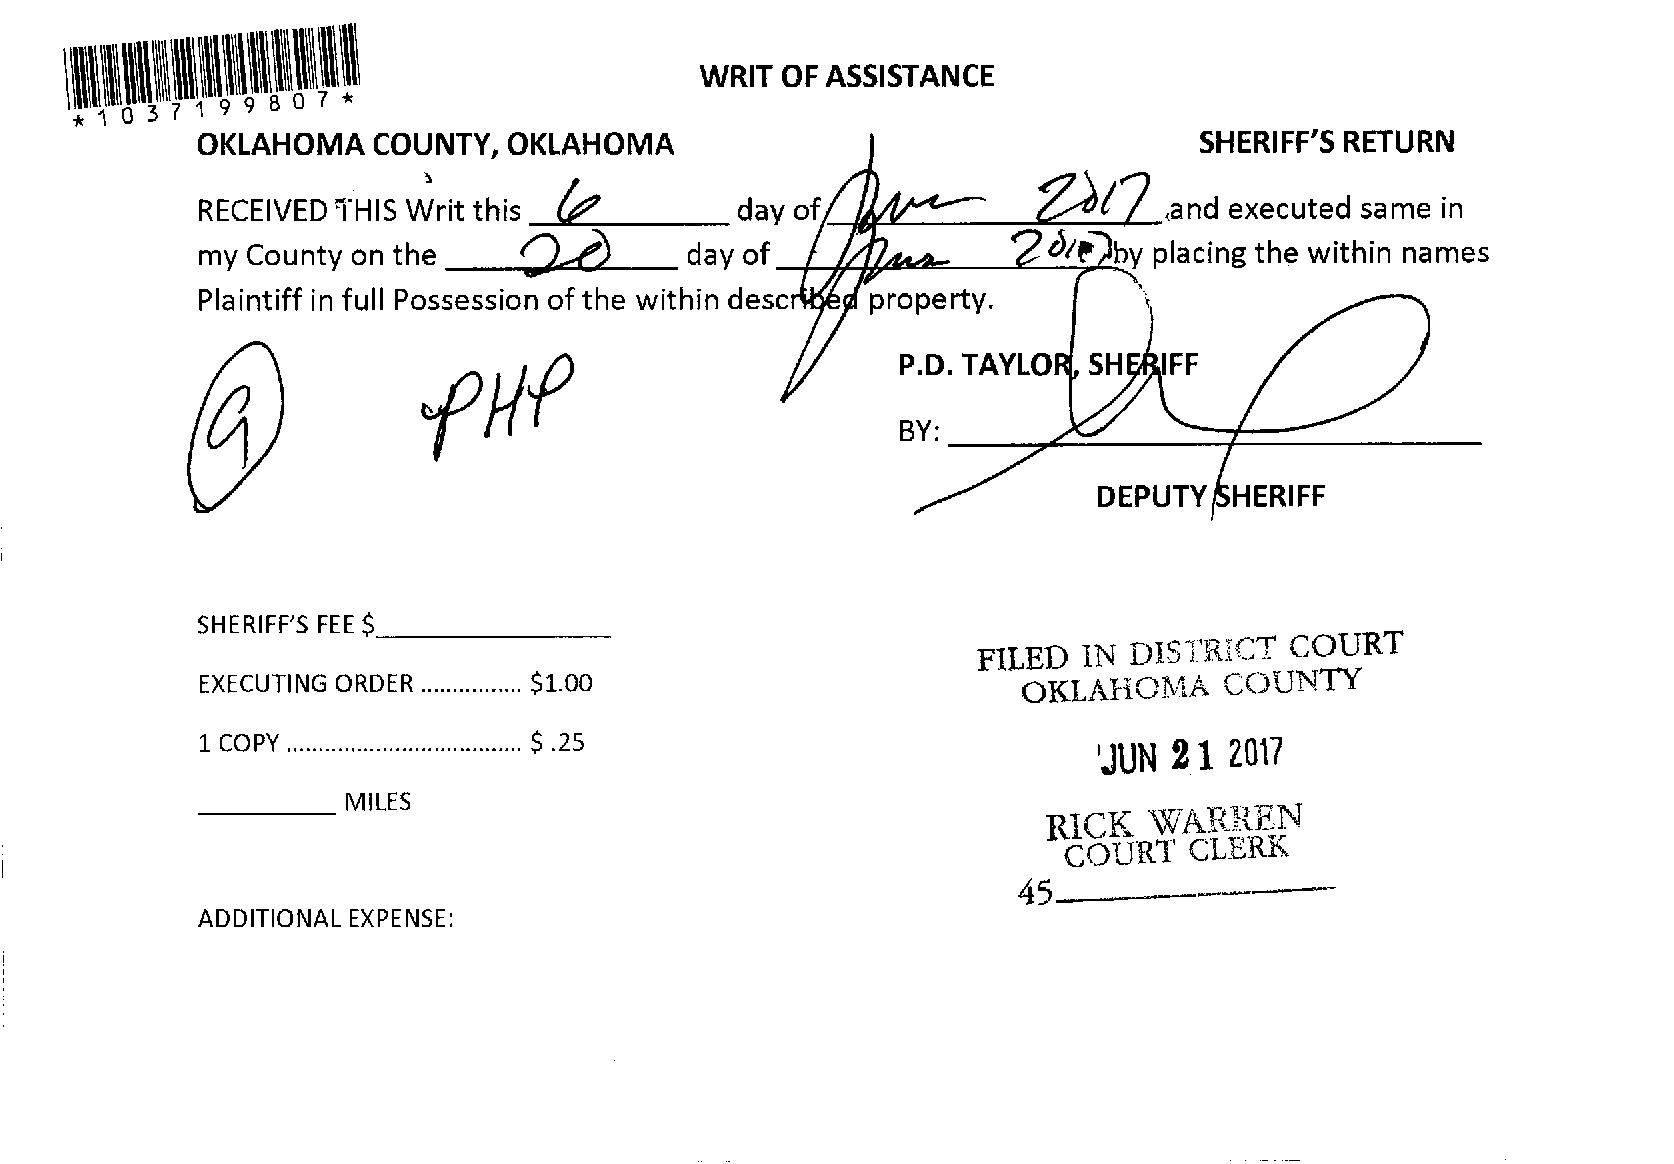 *1037199807*
WRIT OF ASSISTANCE
OKLAHOMA COUNTY, OKLAHOMA SHERIFF'S RETURN
RECEIVED THIS Writ this 6 day of June 2017 ,and executed same in
my County on the 20 day of June 2017 by placing the within names
Plaintiff in full Possession of the within described property.
9 PHP
P.D. TAYLOR, SHERIFF
BY:
DEPUTY SHERIFF
SHERIFF'S FEE $
EXECUTING ORDER ................ $1.00
1 COPY ..................................... $ .25
MILES
ADDITIONAL EXPENSE:
FILED IN DISTRICT COURT
OKLAHOMA COUNTY
JUN 21 2017
RICK WARREN
COURT CLERK
45